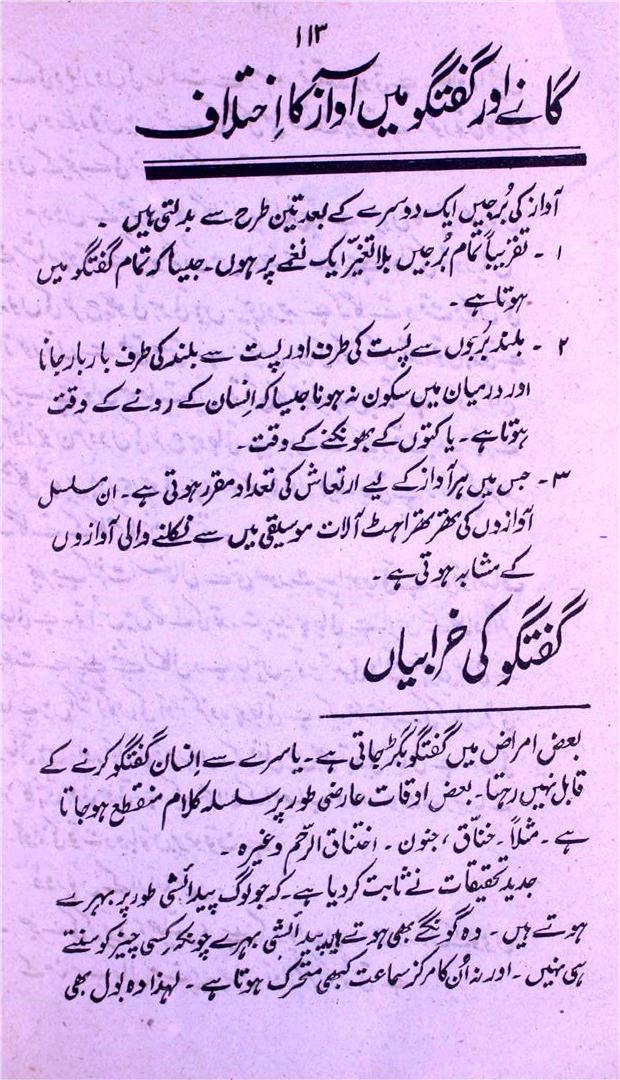 ۱۱۳
گانے اور گفتگو میں آواز کا اِختلاف
آواز کی بُرجیں ایک دوسرے کے بعد تین طرح سے بدلتی ہیں ۔
۱ ۔ تقریباً تمام بُرجیں بلا تغیّر ایک نغمے پر ہوں۔ جیسا کہ تمام گفتگو میں
ہوتا ہے ۔
۲ ۔ بلند بُرجوں سے پَست کی طرف اور پست سے بلند کی طرف بار بار جانا
اور درمیان میں سکون نہ ہونا جیسا کہ اِنسان کے رونے کے وقت
ہوتا ہے ۔ یا کتوں کے بھونکنے کے وقت ۔
۳ ۔ جس میں ہر آواز کے لیے ارتعاش کی تعداد مقرر ہوتی ہے ۔ ان مسلسل
آوازوں کی تھرتھراہٹ آلات موسیقی میں سے نکلنے والی آوازوں
کے مشابہ ہوتی ہے ۔
گفتگو کی خرابیاں
بعض امراض میں گفتگو بگڑ جاتی ہے ۔ یا سرے سے اِنسان گفتگو کرنے کے
قابل نہیں رہتا ۔ بعض اوقات عارضی طور پر سلسلہ کلام منقطع ہو جاتا
ہے ۔ مثلاً ۔ خنّاق ، جنون ۔ اختناق الرّحم وغیرہ ۔
جدید تحقیقات نے ثابت کر دیا ہے ۔ کہ جو لوگ پیدائشی طور پر بہرے
ہوتے ہیں ۔ وہ گونگے بھی ہوتے ہیں پیدائشی بہرے چونکہ کسی چیز کو سنتے
ہی نہیں ۔ اور نہ اُن کا مرکز سماعت کبھی متحرک ہوتا ہے ۔ لہذا وہ بول بھی